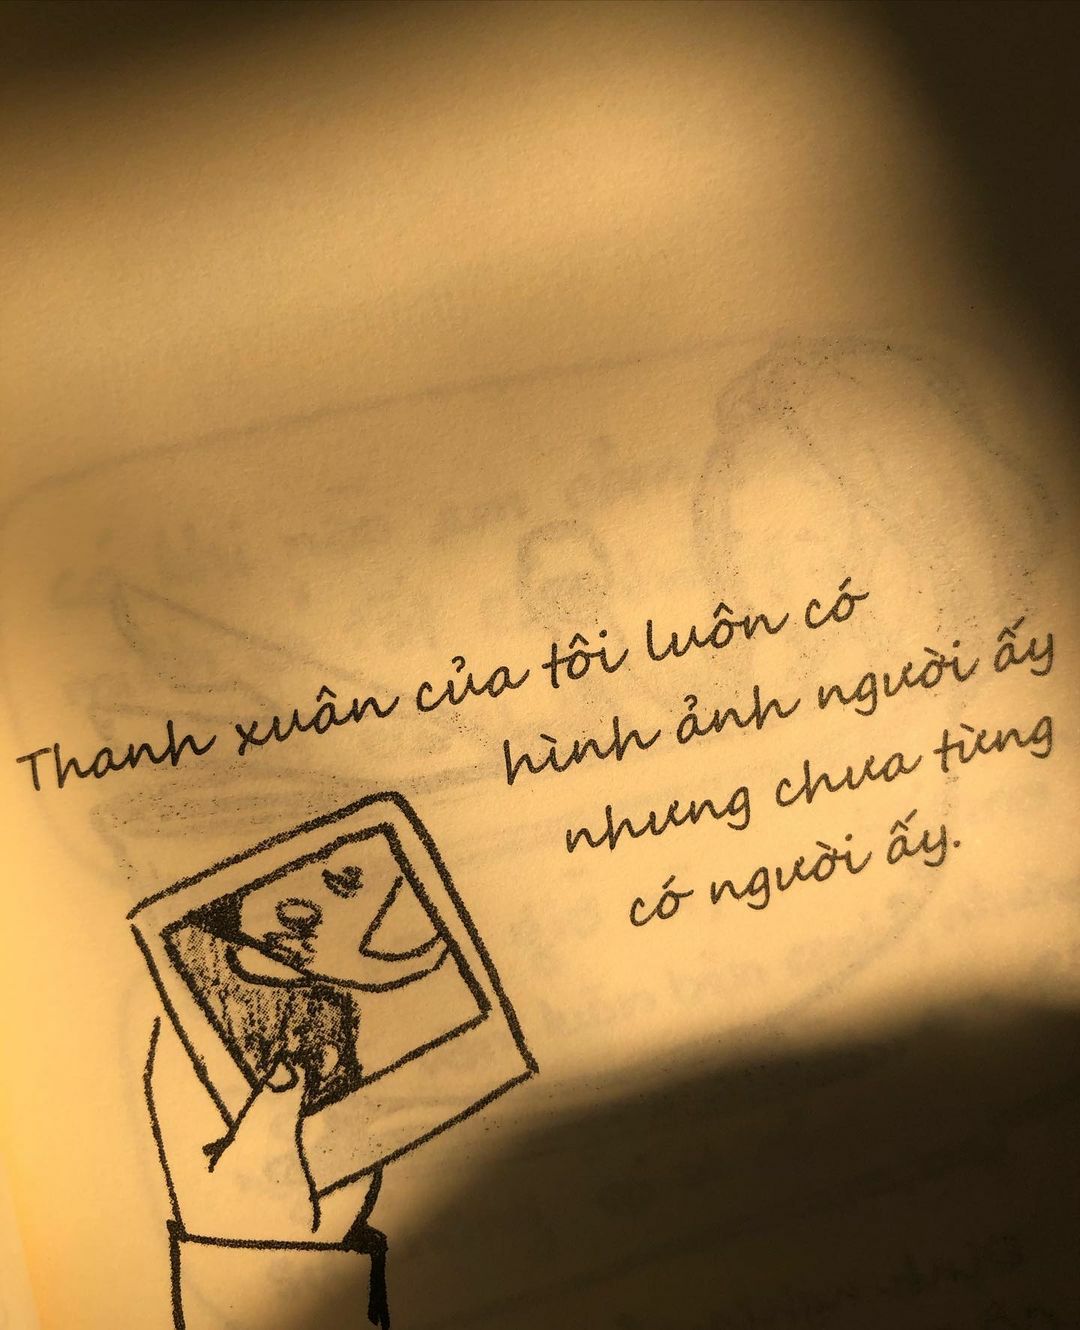 Thanh xuân của tôi luôn có
hình ảnh người ấy
nhưng chưa từng
có người ấy.